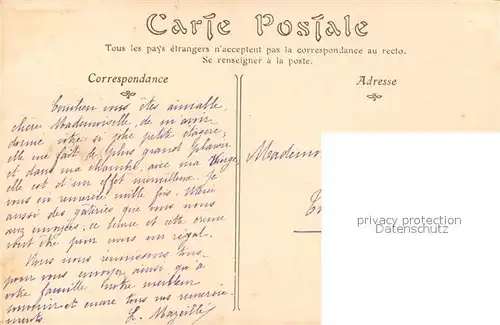 Carte Postale
Tous les pays étrangers n'acceptent pas la correspondance au recto.
Se renseigner à la poste.
Correspondance
Adresse
Combien vous êtes aimable,
chère Mademoiselle, de m'avoir
donné votre si jolie petite étagère;
elle me fait le plus grand plaisir
et dans ma chambre, avec ma Vierge,
elle est d'un effet merveilleux. Je
vous en remercie mille fois. Merci
aussi des gâteries que vous nous
avez envoyées; ce beurre et cette crème
vont être pour nous un régal.
Nous nous réunissons tous
pour vous envoyer, ainsi qu'à
votre famille notre meilleur
souvenir et encore tous nos remercie-
ments.
Mademoi
privacy protection
Datenschutz